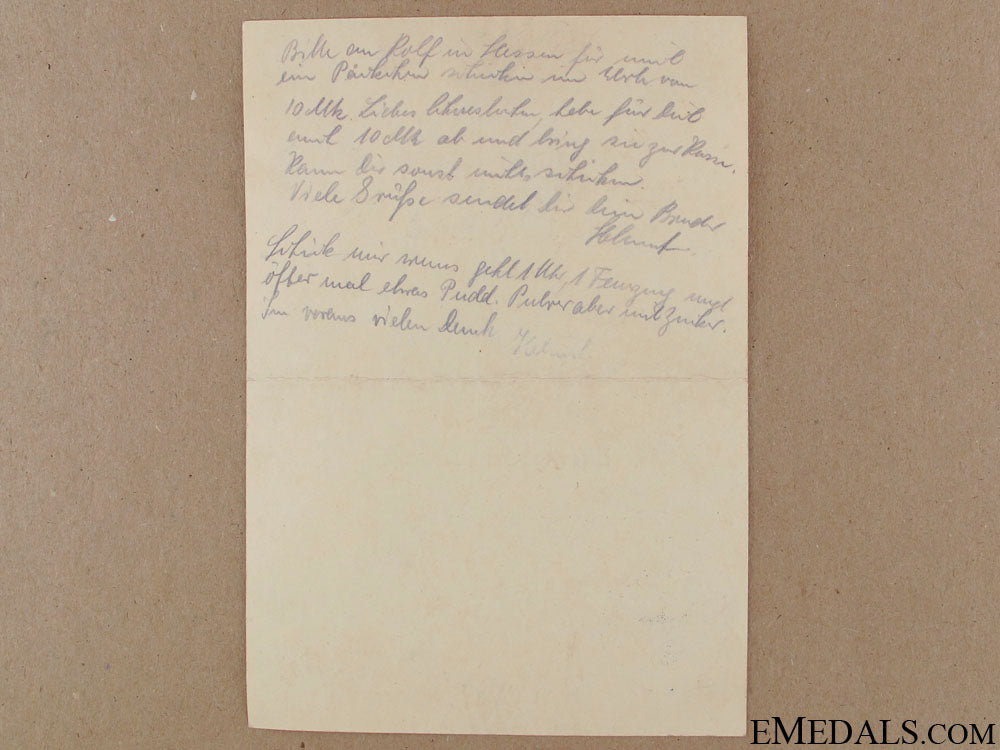 Bitte an Rolf in Hessen für mich
ein Päckchen schicken im Werte von
10 Mk. Liebes Schwesterchen, hebe für dich
und 10 Mk ab und bring sie zur Kasse.
Kann Dir sonst nichts schicken.
Viele Grüße sendet dir dein Bruder
Helmut.
Schick mir wenns geht 1 Uhr, 1 Feuerzeug und
öfter mal etwas Pudd. Pulver aber mit Zucker.
Im voraus vielen Dank
Helmut.
EMEDALS.COM